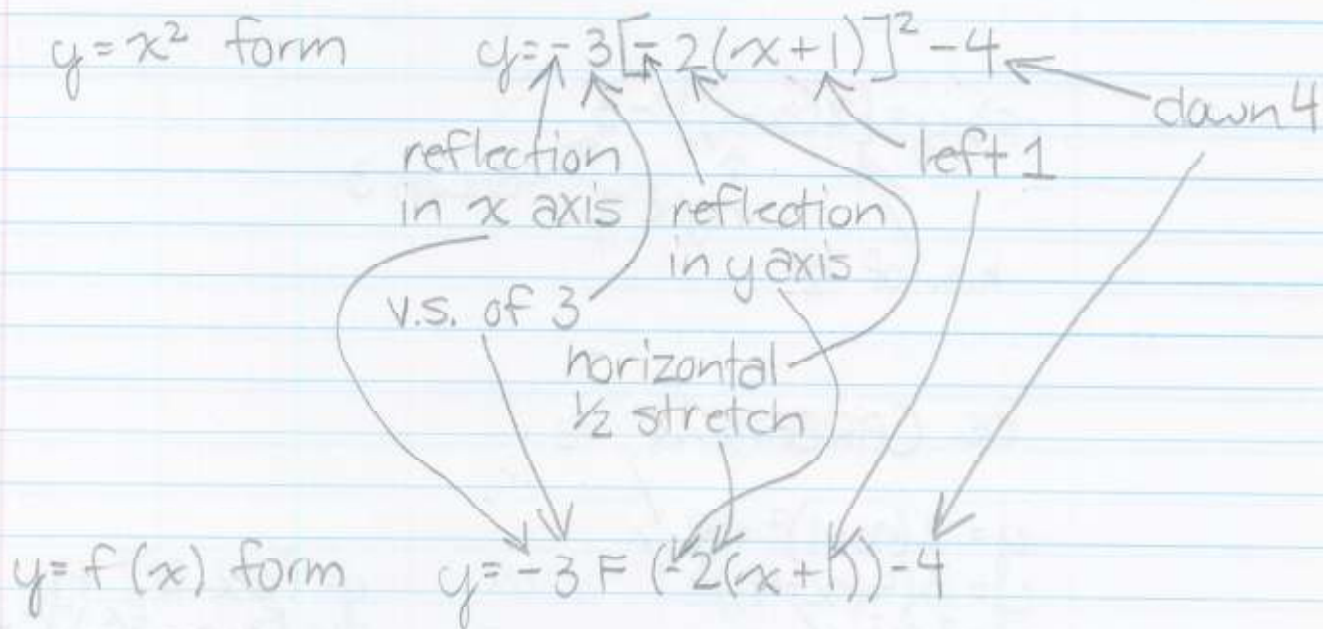 y=x² form y=-3[-2(x+1)]²-4
down 4
reflection left 1
in x axis reflection
in y axis
v.s. of 3
horizontal
½ stretch
y=f(x) form y=-3F(-2(x+1))-4